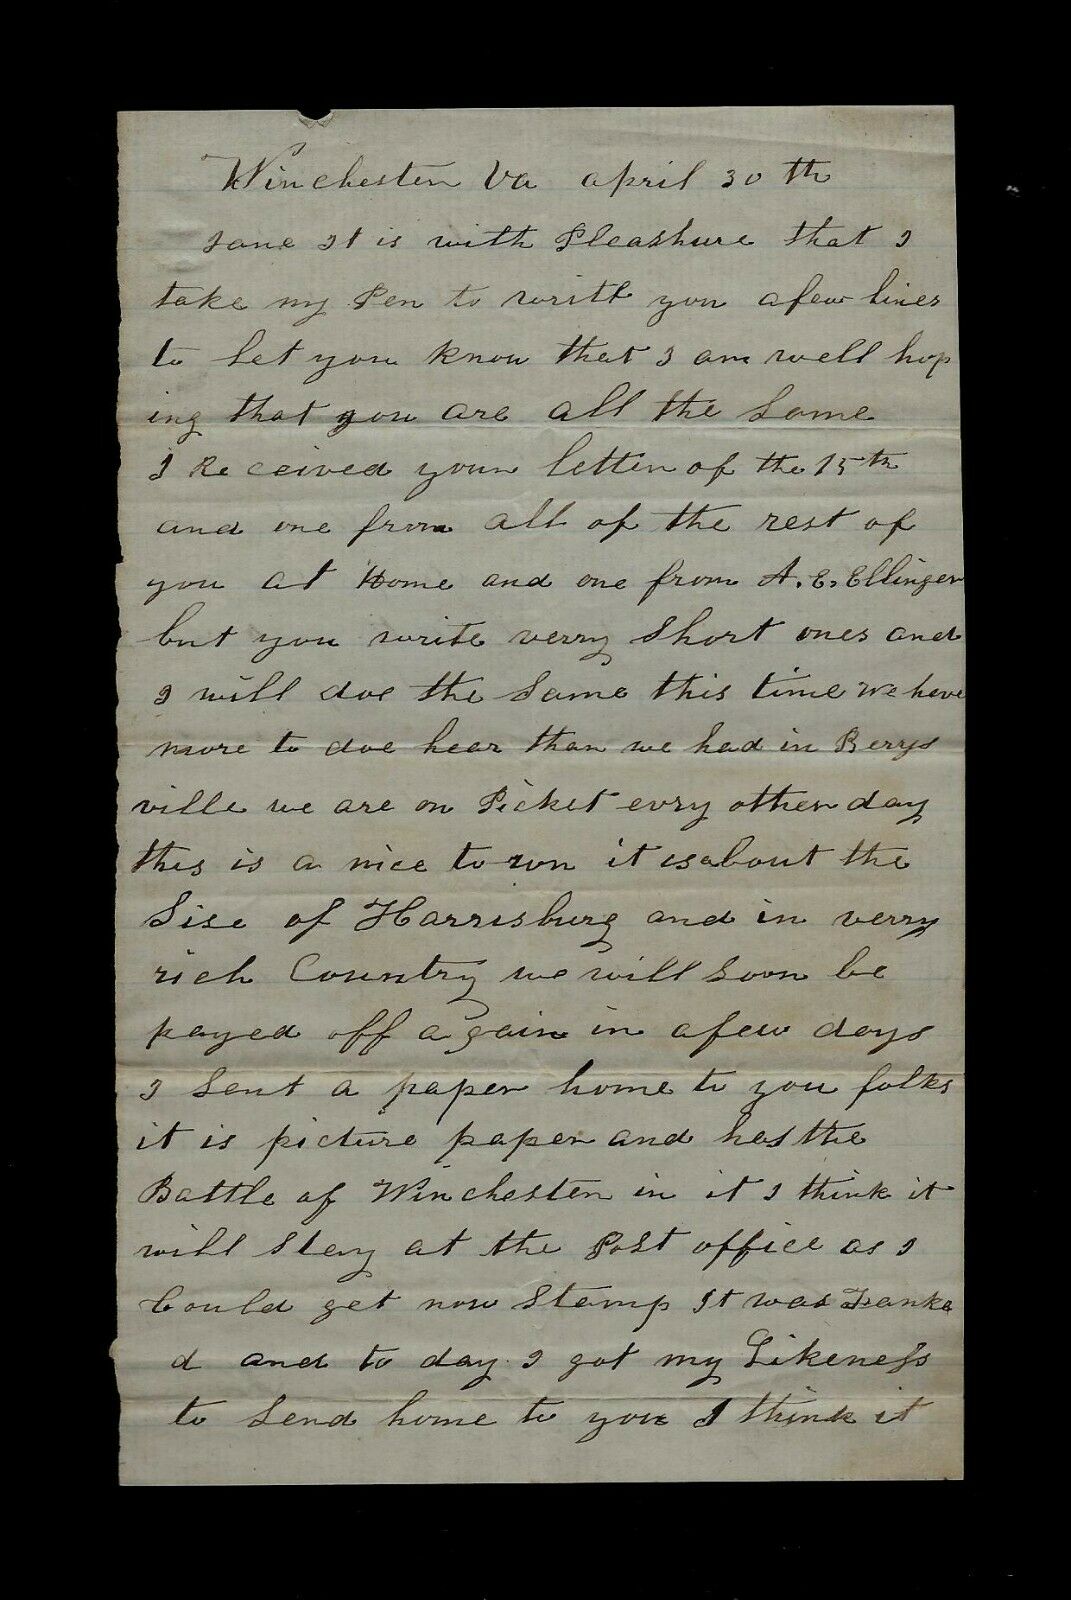 Winchester Va april 30 th
Jane It is with Pleashure that I
take my Pen to write you afew lines
to let you know that I am well hop
ing that you are all the Same
I Re ceived your letter of the 15th
and one from all of the rest of
you at Home and one from A. E. Ellinger
but you write verry Short ones and
I will doe the Same this time We have
more to doe hear than we had in Berrys
ville we are on Picket evry other day
this is a nice to wn it is about the
Sise of Harrisburg and in verry
rich Country we will Soon be
payed off again in afew days
I Sent a paper home to you folks
it is picture paper and has the
Battle of Winchester in it I think it
will Stay at the Post office as I
Could get now Stamp It was Franke
d and to day I got my Likeness
to Send home to you I think it